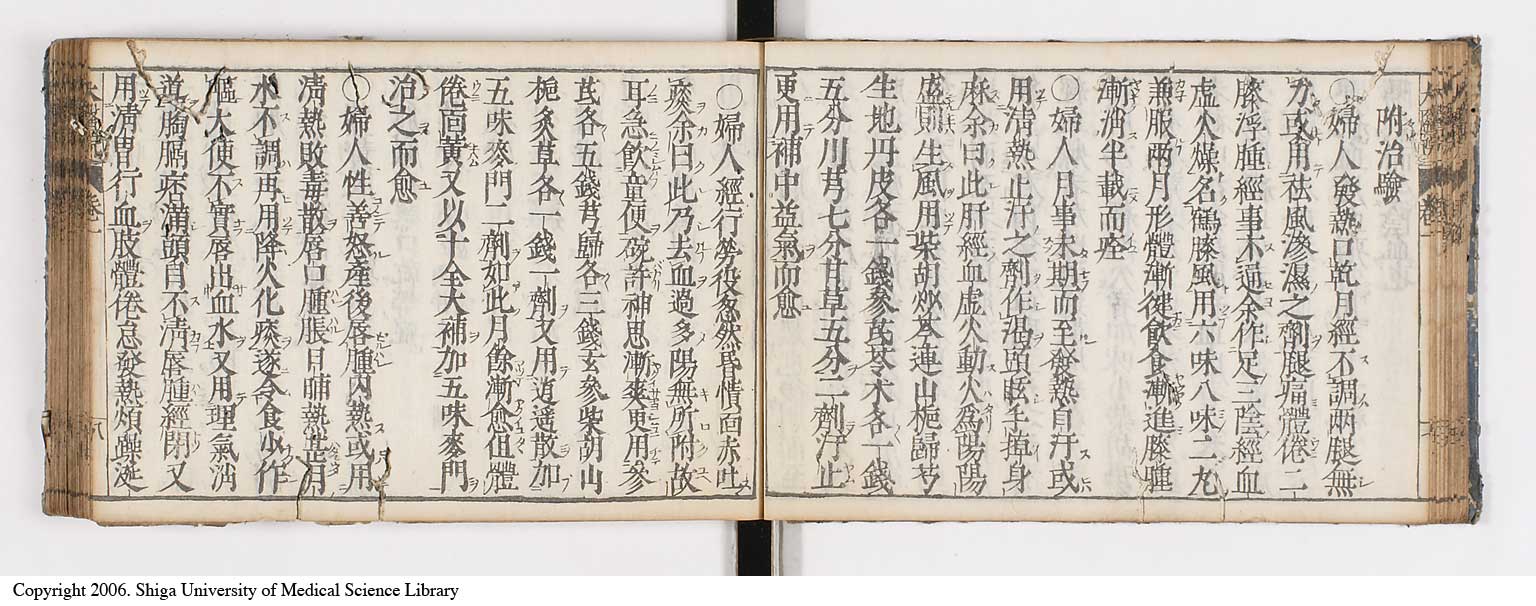 附治驗
○婦人發熱口乾月經不調兩腿無
力或用祛風滲濕之劑腿痛體倦二
膝浮腫經事不通余作足三陰經血
虛火燥名鶴膝風用六味八味二丸
兼服兩月形體漸健飲食漸進膝腫
漸消半載而痊
○婦人月事未期而至發熱自汗或
用清熱止汗之劑作渴頭眩手掉身
麻余曰此肝經血虛火動火為陽陽
盛則生風用柴胡炒芩連山梔歸芍
生地丹皮各一錢參芪苓朮各一錢
五分川芎七分甘草五分二劑汗止
更用補中益氣而愈
○婦人經行勞役忽然昏憒面赤吐
痰余曰此乃去血過多陽無所附故
耳急飲童便碗許神思漸爽更用參
芪各五錢芎歸各三錢玄參柴胡山
梔炙草各一錢一劑又用逍遥散加
五味麥門二劑如此月餘漸愈但體
倦面黃又以十全大補加五味麥門
治之而愈
○婦人性善怒產後唇腫內熱或用
清熱敗毒散唇口腫脹日晡熱甚月
水不調再用降火化痰遂令食少作
嘔大便不實唇出血水又用理氣消
導胸膈痞滿頭目不清唇腫經閉又
用清胃行血肢體倦怠發熱煩躁涎
Copyright 2006. Shiga University of Medical Science Library